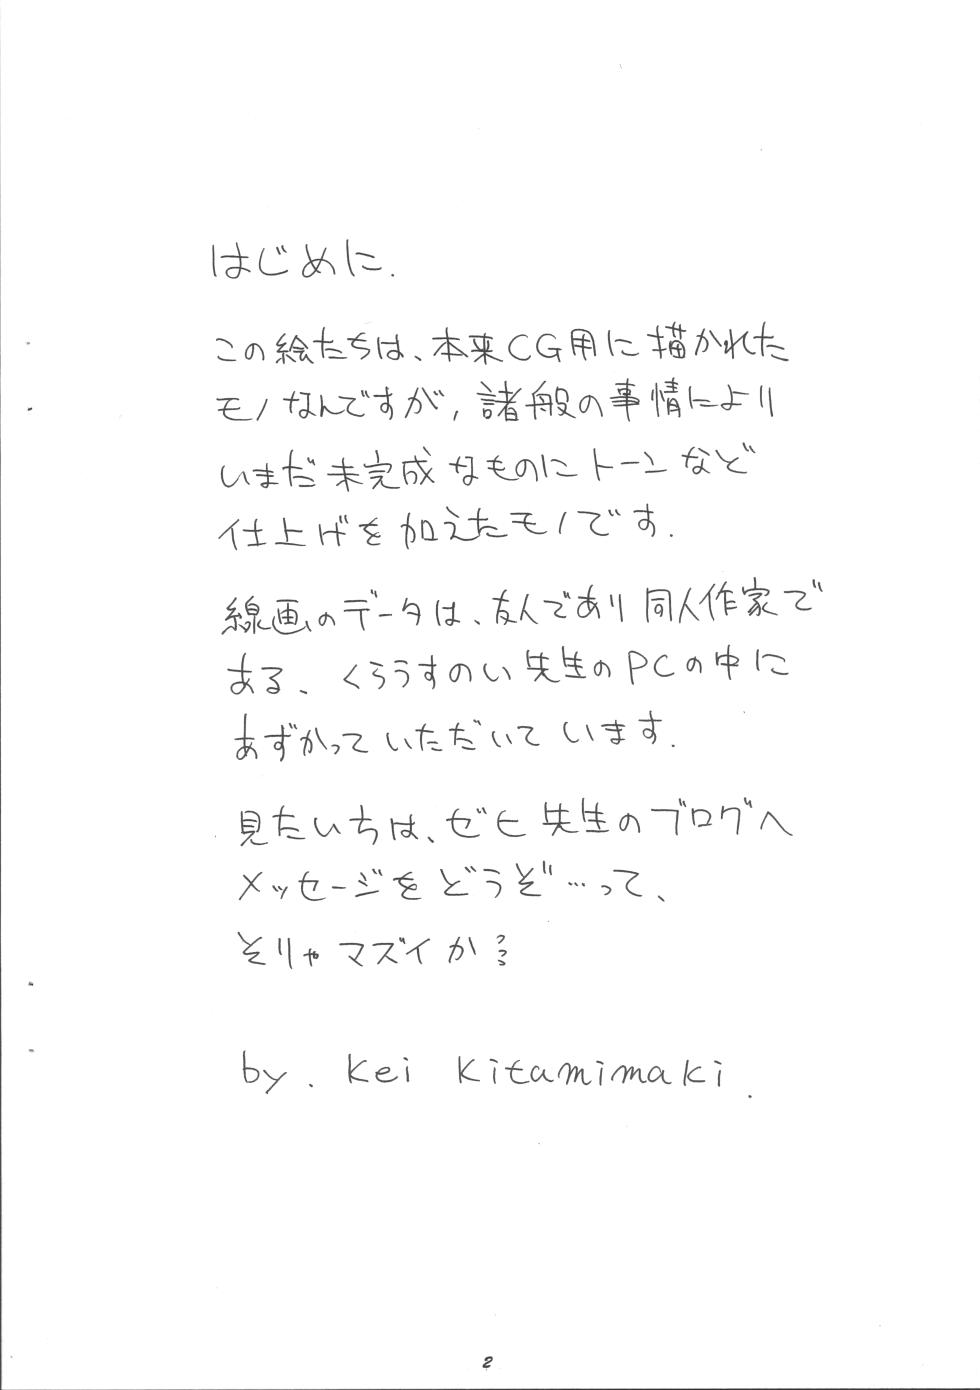 はじめに.
この絵たちは、本来CG用に描かれた
モノなんですが, 諸般の事情により
いまだ未完成なものにトーンなど
仕上げを加えたモノです.
線画のデータは、友人であり同人作家で
ある、くろうすのい先生のPCの中に
あずかっていただいています.
見たいちは、ゼヒ先生のブログへ
メッセージをどうぞ…って、
そりゃマズイか
by. Kei Kitamimaki.
2